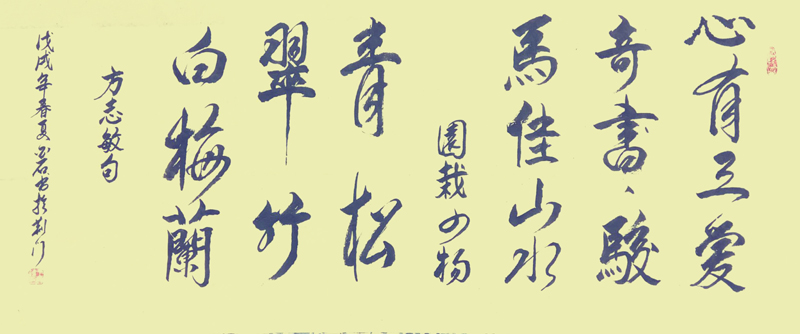 心有三愛
奇書、駿
馬佳山水
園栽四物
青松
翠竹
白梅蘭
方志敏句
戊戌年春夏